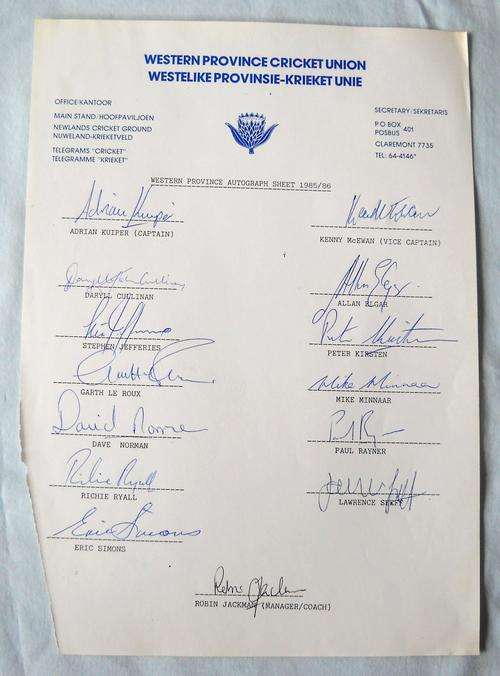 WESTERN PROVINCE CRICKET UNION
WESTELIKE PROVINSIE-KRIEKET UNIE
OFFICE·KANTOOR
MAIN STAND/HOOFPAVILJOEN
NEWLANDS CRICKET GROUND
NUWELAND-KRIEKETVELD
TELEGRAMS "CRICKET"
TELEGRAMME "KRIEKET"
SECRETARY/SEKRETARIS
P O BOX
POSBUS 401
CLAREMONT 7735
TEL: 64-4146
WESTERN PROVINCE AUTOGRAPH SHEET 1985/86
Adrian Kuiper
ADRIAN KUIPER (CAPTAIN)
KENNY McEWAN (VICE CAPTAIN)
Daryll Cullinan
DARYLL CULLINAN
Allan Elgar
ALLAN ELGAR
STEPHEN JEFFERIES
Peter Kirsten
PETER KIRSTEN
GARTH LE ROUX
Mike Minnaar
MIKE MINNAAR
David Norman
DAVE NORMAN
PAUL RAYNER
Richie Ryall
RICHIE RYALL
LAWRENCE
Eric Simons
ERIC SIMONS
Robin Jackman
ROBIN JACKMAN (MANAGER/COACH)